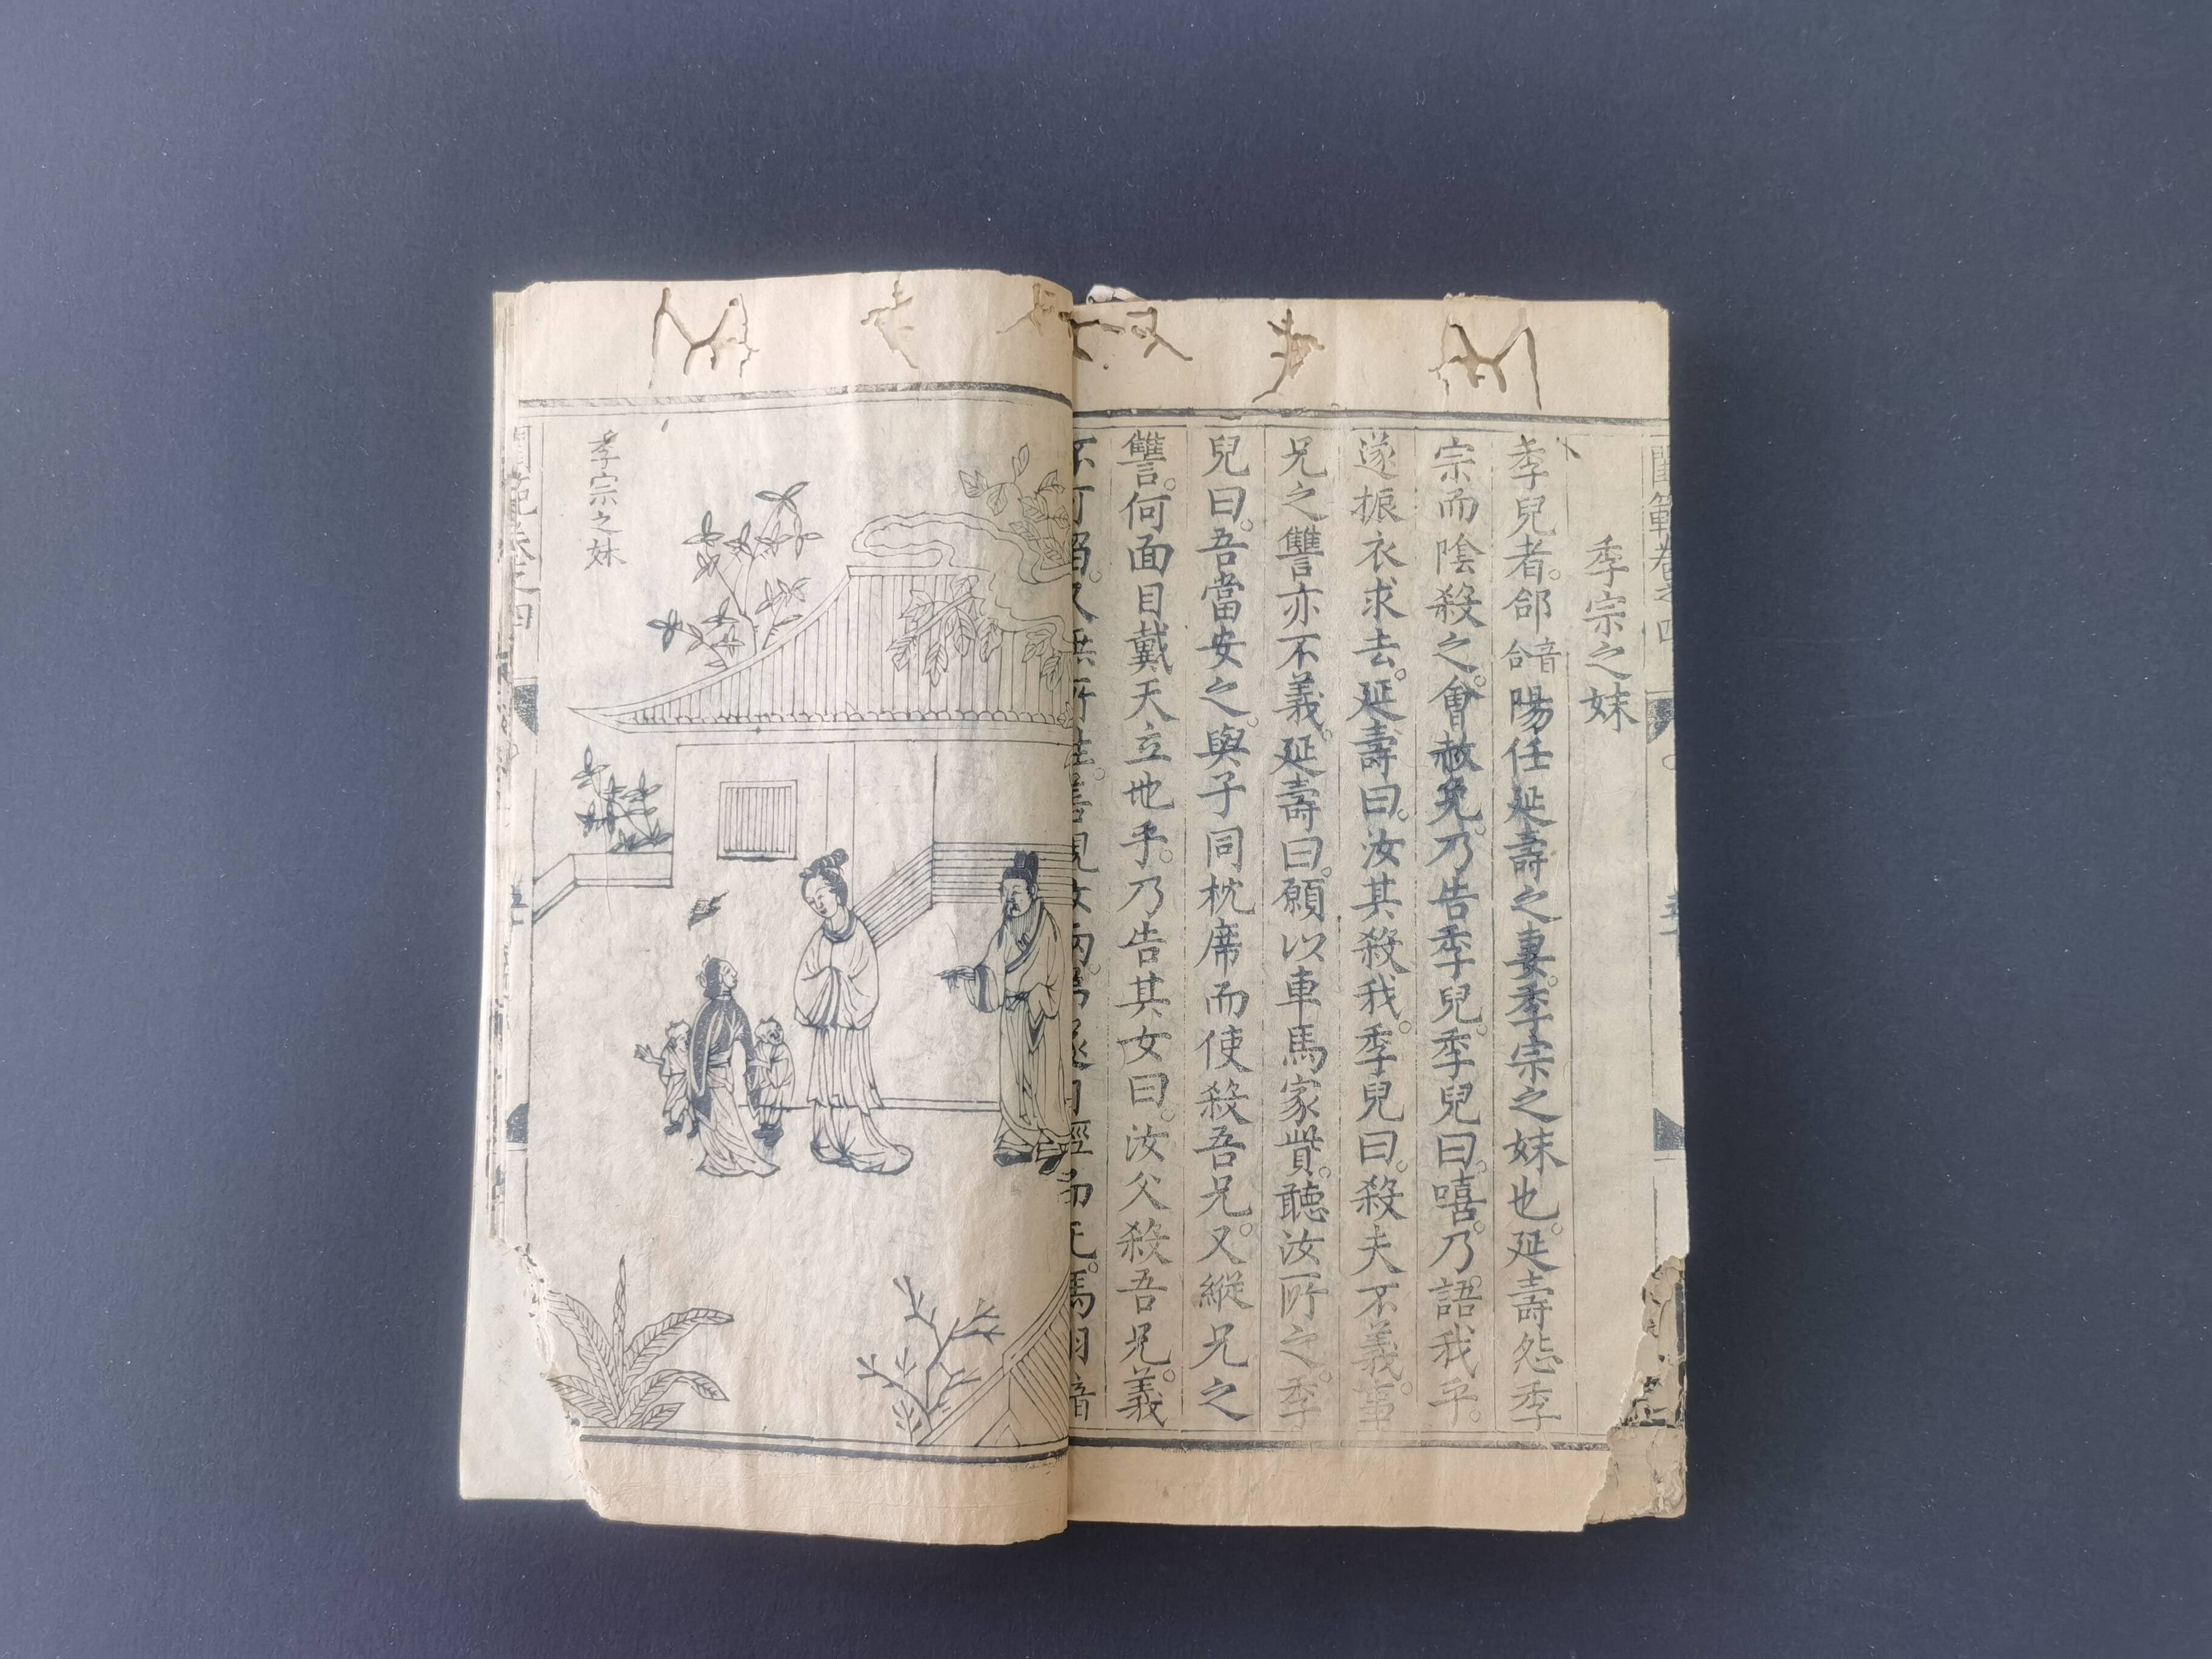 閨範卷之四
季宗之妹
季兒者。郃音合陽任延壽之妻。季宗之妹也。延壽怨季
宗而陰殺之。會赦免。乃告季兒。季兒曰。嘻。乃語我乎。
遂振衣求去。延壽曰。汝其殺我。季兒曰。殺夫不義。事
兄之讐亦不義。延壽曰。願以車馬家貲。聽汝所之。季
兒曰。吾當安之。與子同枕席而使殺吾兄。又縱兄之
讐。何面目戴天立地乎。乃告其女曰。汝父殺吾兄。義
不可留。又無所往。善視汝兩弟。遂自經而死。馮翊音
季宗之妹
閨範卷之四